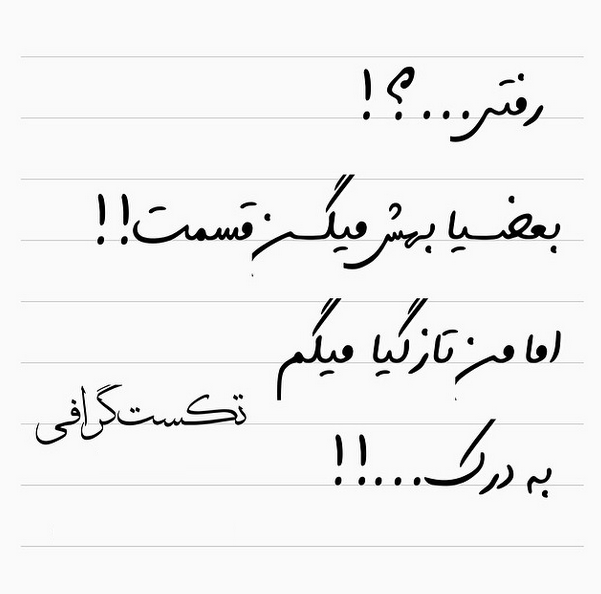 رفتی...؟!
بعضیا بهش میگن قسمت!!
اما من تازگیا میگم
تکست‌گرافی
به درک...!!